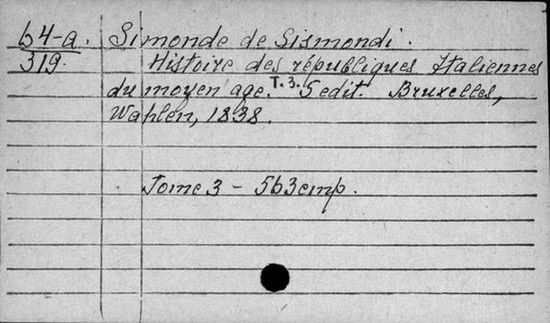 64-a. Simonde de Sismondi.
319. Histoire des républiques Italiennes
du moyen age. T. 3. 5 edit. Bruxelles,
Wahlen, 1838.
Tome 3 - 563 стр.